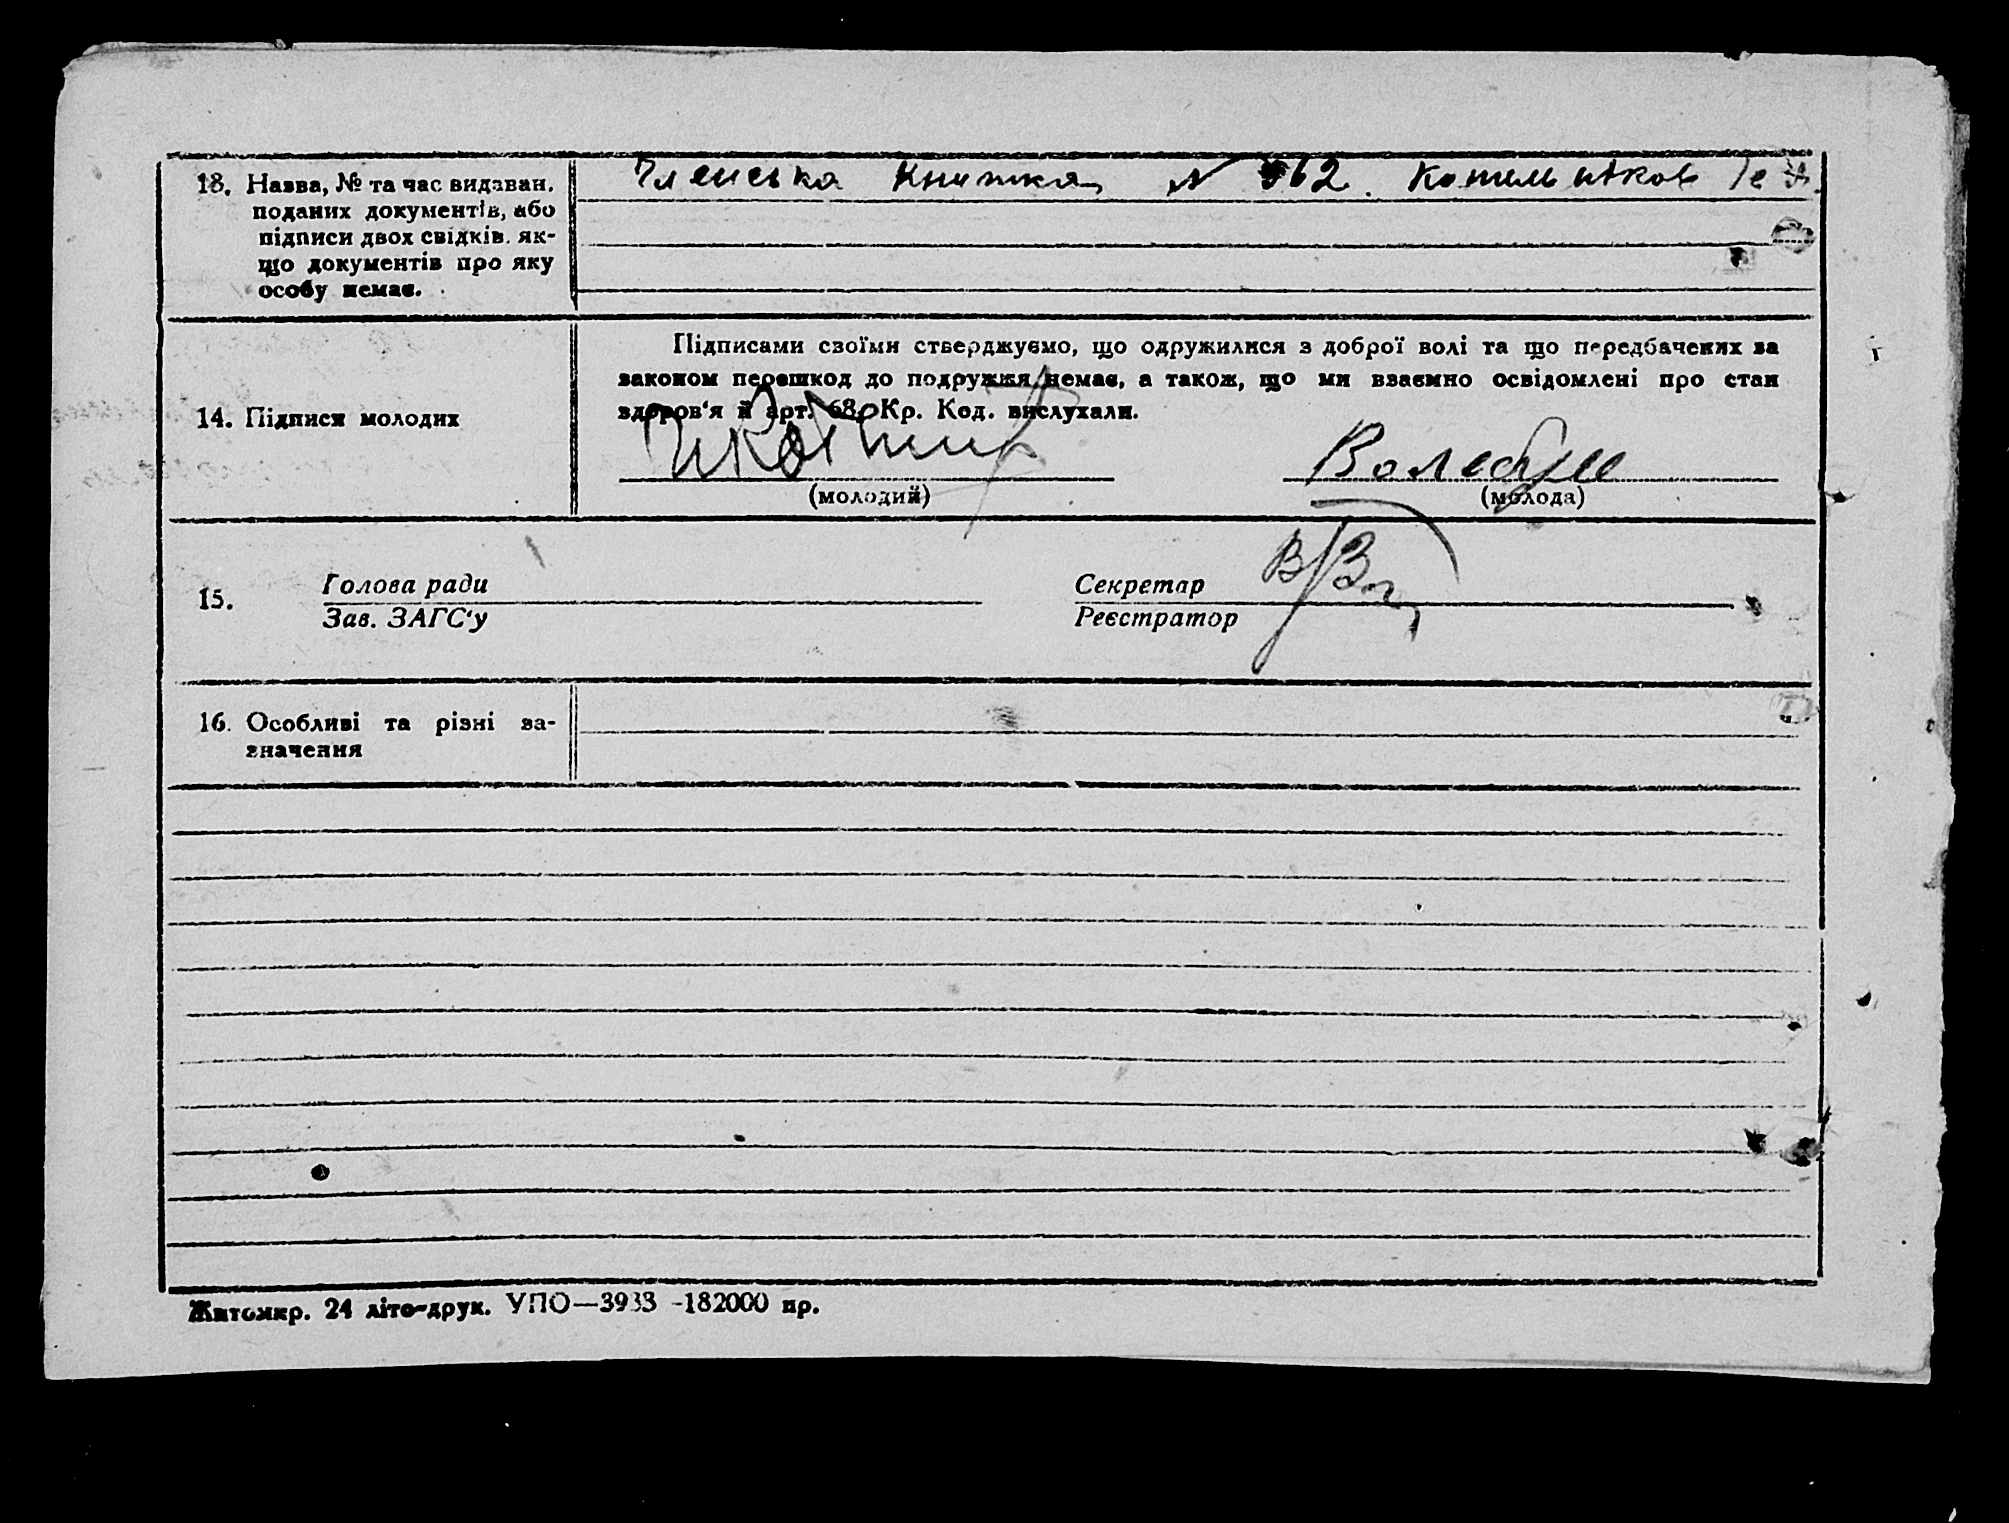 13. Назва, № та час видаван.
поданих документів, або
підписи двох свідків, як-
що документів про яку
особу немає.
Членська Книжка № 962.
14. Підписи молодих
Підписами своїми стверджуємо, що одружилися з доброї волі та що передбачених за
законом перешкод до подружжя немає, а також, що ми взаємно освідомлені про стан
здоров‘я й арт. 68 Кр. Код. вислухали.
(молодий)
(молода)
15.
Голова ради
Зав. ЗАГС‘у
Секретар
Реєстратор
16. Особливі та різні за-
значення
Житомир. 24 літо-друк. УПО—3933 -182000 пр.